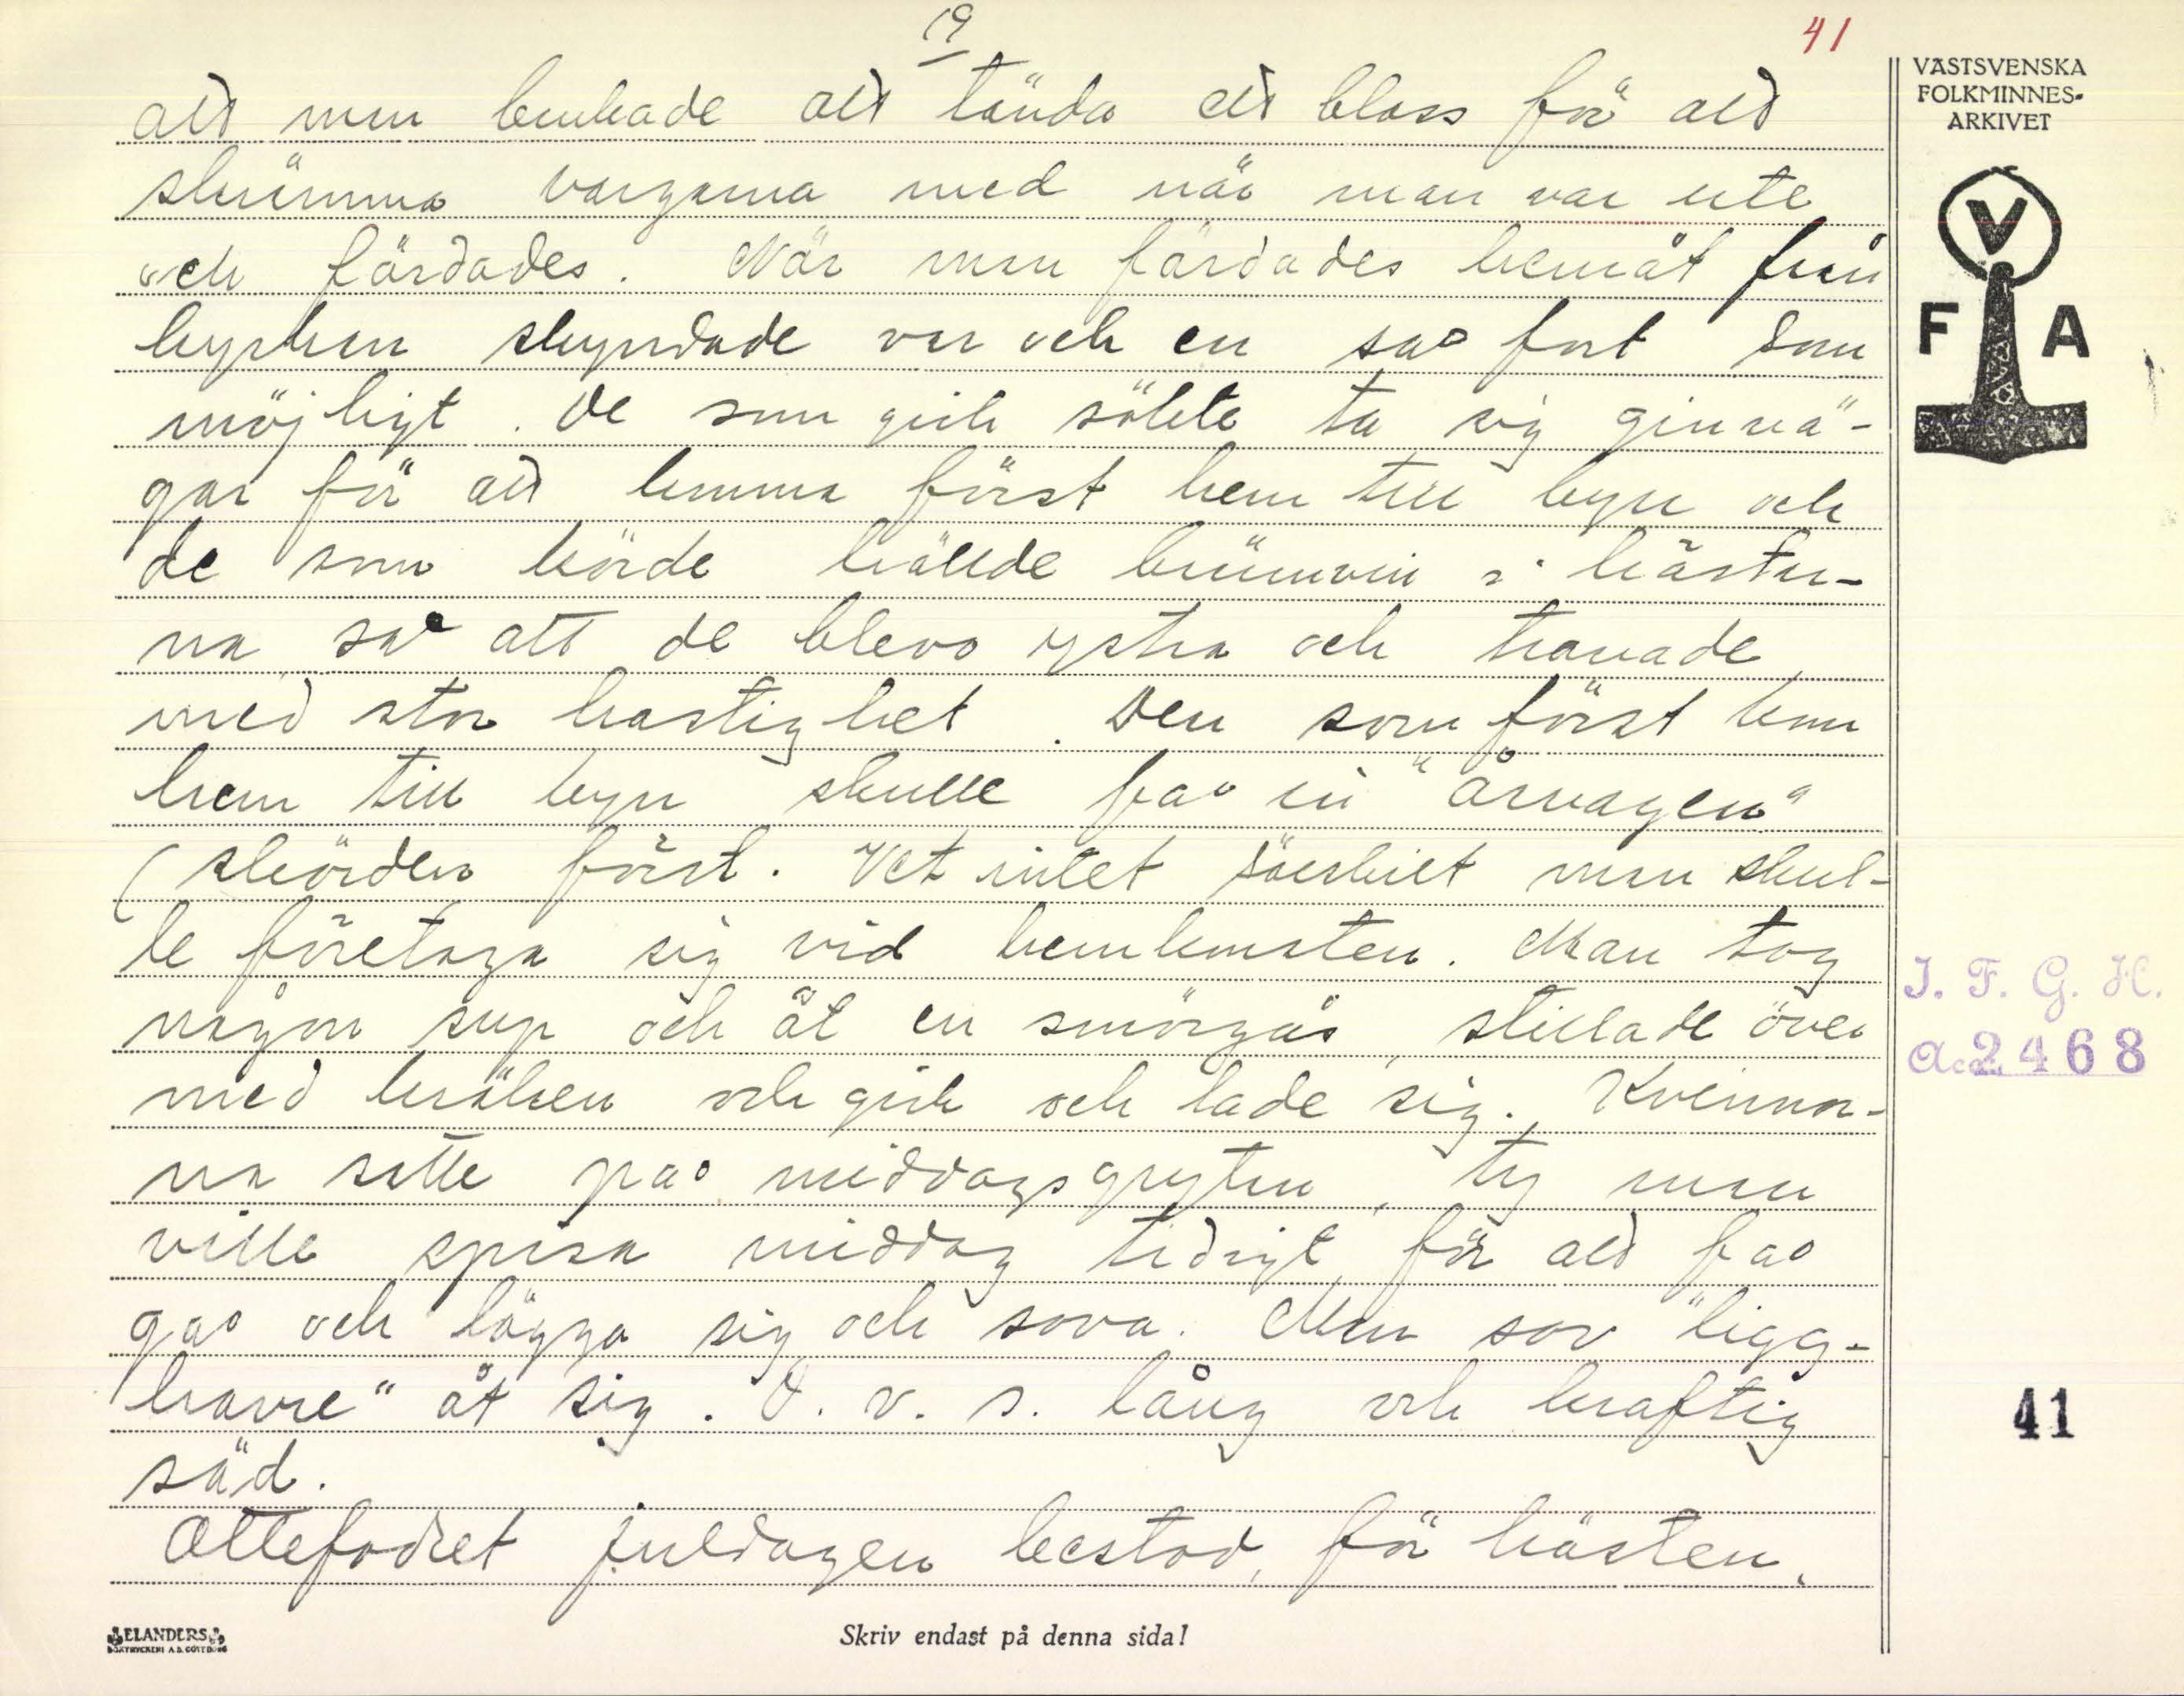 19
41
att man brukade att tända ett bloss för att
skrämma vargarna med när man var ute
och färdades. När man färdades hemåt från
kyrkan skyndade var och en så fort som
möjligt. De som gick sökte ta sig ginvä-
gar för att komma först hem till byn och
de som körde hällde brännvin i hästar-
na så att de blevo ystra och travade
med stor hastighet. Den som först kom
hem till byn skulle få in "årvagen"
(skörden först. Vet intet särskilt man skul-
le företaga sig vid hemkomsten. Man tog
någon sup och åt en smörgås, stillade över
med kräken och gick och lade sig. Kvinnor-
na satte på middagsgrytan, ty man
ville spisa middag tidigt, för att få
gå och lägga sig och sova. Man sov "ligg-
havre" åt sig. D. v. s. lång och kraftig
säd.
Ottefodret juldagen bestod, för hästen,
VÄSTSVENSKA
FOLKMINNES-
ARKIVET
V
F A
I. F. G. H.
Acc. 2468
41
ELANDERS
BOKTRYCKERI A.B. GÖTEBORG
Skriv endast på denna sida!